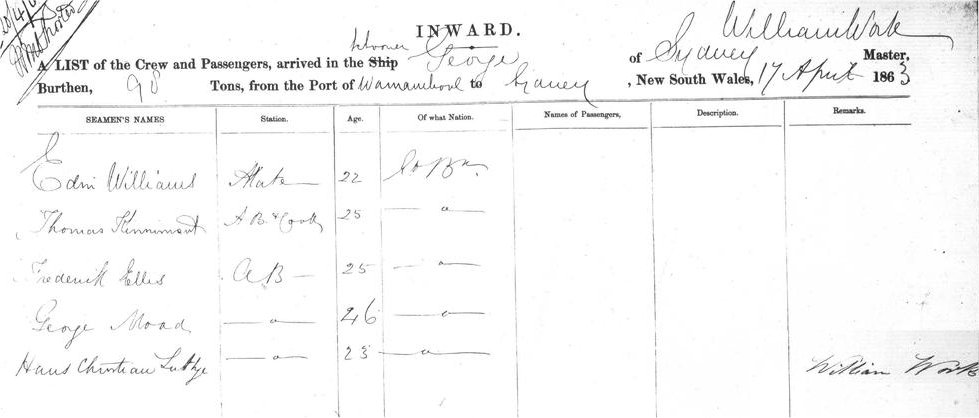 20/4/6
INWARD.
William Work
Schooner
A LIST of the Crew and Passengers, arrived in the Ship George of Sydney Master,
Burthen, 98 Tons, from the Port of Warnambool to Sydney, New South Wales, 17 April 1863
SEAMEN'S NAMES Station. Age. Of what Nation. Names of Passengers, Description. Remarks.
Edm Williams Mate 22 Gt Bn.
Thomas Kinnimont A B & Cook 25 — " —
Frederick Ellis AB — 25 — " —
George Moad — " — 46 — " —
Hans Christian Luthje — " — 23 — " —
William Work